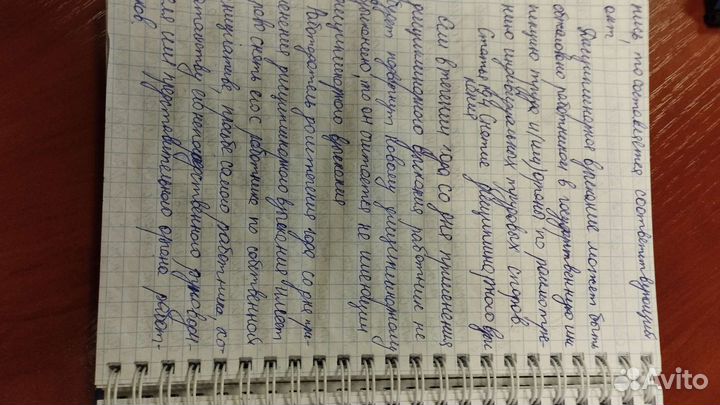 ния, то составляется соответствующий
акт.
Дисциплинарное взыскание может быть
обжаловано работником в государственную ин
спекцию труда и (или) органы по рассмотре-
нию индивидуальных трудовых споров.
Статья 194 Снятие дисциплинарного взы
скания
Если в течении года со дня применения
дисциплинарного взыскания работник не
будет подвергнут новому дисциплинарному
взысканию, то он считается не имеющим
дисциплинарного взыскания
Работодатель до истечения года со дня при-
менения дисциплинарного взыскания имеет
право снять его с работника по собственной
инициативе, просьбе самого работника, хо-
датайству его непосредственного руководи
теля или представительного органа работ-
ников
Avito